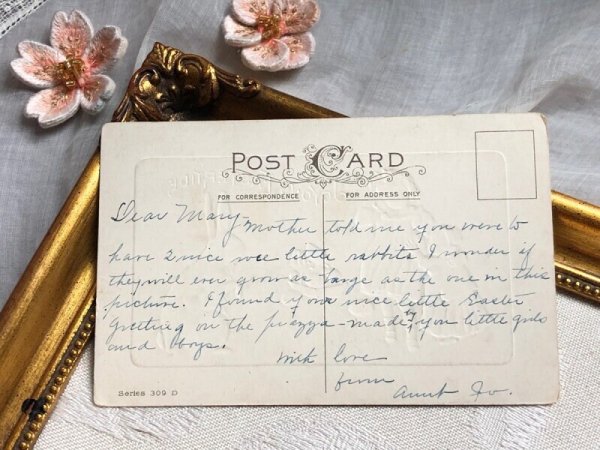 POST CARD
FOR CORRESPONDENCE
FOR ADDRESS ONLY
Dear Mary - Mother told me you were to
have 2 nice wee little rabbits I wonder if
they will ever grow as large as the one in this
picture. I found your nice little Easter
Greeting on the piazza - made by you little girls
and boys.
With love
from
Aunt Jo.
Series 309 D